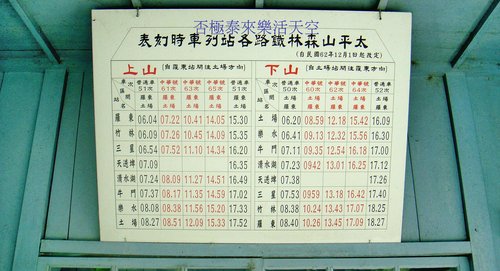 否極泰來樂活天空
表刻時車列站各路鐵林森山平太
(自民國62年12月1日起改定)
上山 (自羅東站開往土場方向)
車次 區間 站名 普通車 51次 羅東 土場 中華號 61次 羅東 土場 中華號 63次 羅東 土場 中華號 65次 羅東 土場 普通車 53次 羅東 土場
羅東 06.04 07.22 10.41 14.05 15.30
竹林 06.09 10.45 14.09 15.35
三星 06.54 07.52 11.10 14.34 16.19
天送埤 07.09 16.35
清水湖 07.24 08.09 11.27 14.51 16.49
牛鬥 07.37 08.17 11.35 14.59 17.02
樂水 08.08 08.38 11.56 15.20 17.33
土場 08.27 08.51 12.09 15.33 17.52
下山 (自土場站開往羅東方向)
車次 區間 站名 普通車 50次 土場 羅東 中華號 60次 土場 羅東 中華號 62次 土場 羅東 中華號 64次 土場 羅東 普通車 52次 土場 羅東
土場 06.20 08.59 12.18 15.42 16.09
樂水 06.41 09.13 12.32 15.56 16.30
牛鬥 07.11 09.35 12.54 16.18 17.00
清水湖 07.23 0942 13.01 16.25 17.12
天送埤 07.38 17.26
三星 07.53 0959 13.18 16.42 17.40
竹林 08.38 10.24 13.43 17.07 18.25
羅東 08.40 10.26 13.45 17.09 18.27